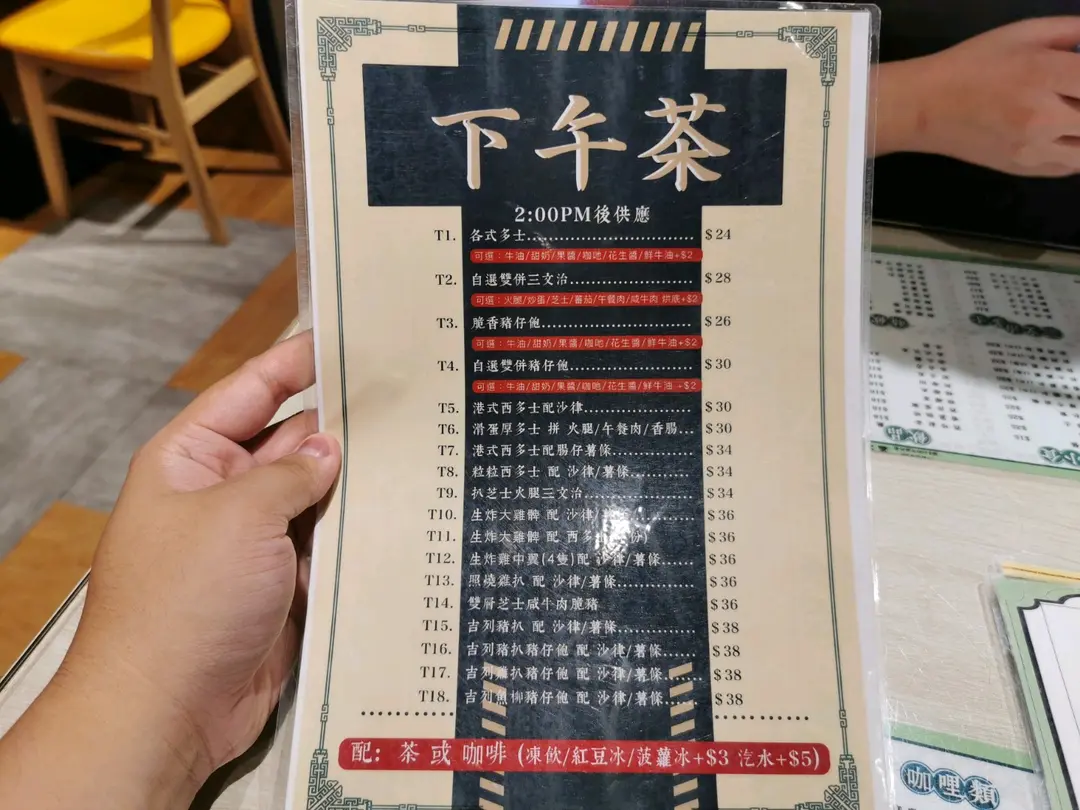 下午茶
2:00PM後供應
T1. 各式多士.............................. $24
可選：牛油/甜奶/果醬/咖吔/花生醬/鮮牛油+$2
T2. 自選雙併三文治...................... $28
可選：火腿/炒蛋/芝士/蕃茄/午餐肉/咸牛肉 烘底+$2
T3. 脆香豬仔飽........................... $26
可選：牛油/甜奶/果醬/咖吔/花生醬/鮮牛油+$2
T4. 自選雙併豬仔飽...................... $30
可選：牛油/甜奶/果醬/咖吔/花生醬/鮮牛油 +$2
T5. 港式西多士配沙律................... $30
T6. 滑蛋厚多士 拼 火腿/午餐肉/香腸... $30
T7. 港式西多士配腸仔薯條.............. $34
T8. 粒粒西多士 配 沙律/薯條........... $34
T9. 扒芝士火腿三文治................... $34
T10. 生炸大雞髀 配 沙律/ ........ $36
T11. 生炸大雞髀 配 西多 份) $36
T12. 生炸雞中翼(4隻)配 沙律/薯條...... $36
T13. 照燒雞扒 配 沙律/薯條.............. $36
T14. 雙層芝士咸牛肉脆豬 $36
T15. 吉列豬扒 配 沙律/薯條.............. $38
T16. 吉列豬扒豬仔飽 配 沙律/薯條...... $38
T17. 吉列雞扒豬仔飽 配 沙律/薯條....... $38
T18. 吉列魚柳豬仔飽 配 沙律/薯條....... $38
配: 茶 或 咖啡 (凍飲/紅豆冰/菠蘿冰+$3 汽水+$5)
飲品
小食
咖哩類